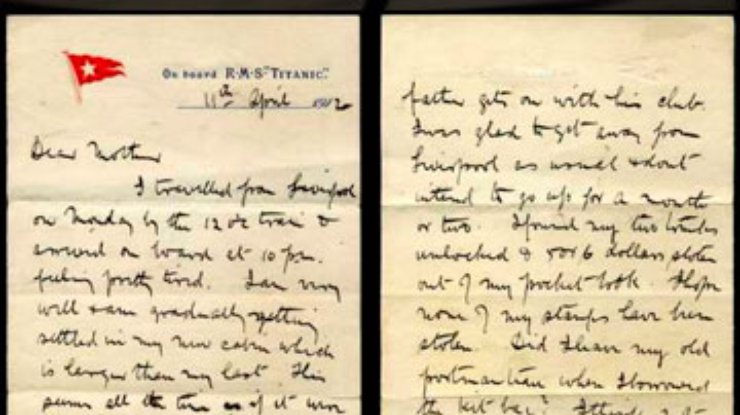 On board R·M·S "TITANIC."
11th April 1912
Dear Mother
I travelled from Liverpool
on Monday by the 12 o'c train &
arrived on board at 10 pm.
feeling pretty tired. I am very
well & am gradually getting
settled in my new cabin which
is larger than my last. This
seems all the time as if it were
father gets on with his club.
I was glad to get away from
Liverpool as usual & don't
intend to go up for a month
or two. I found my two trunks
unlocked & 5 or 6 dollars stolen
out of my pocket book. I hope
none of my stamps have been
stolen. Did I leave my old
portmanteau when I borrowed
the kit bag? I think